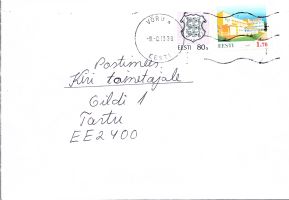 VÕRU
EESTI
EESTI 80s
EESTI
Postimees
Kiri toimetajale
Gildi 1
Tartu
EE2400